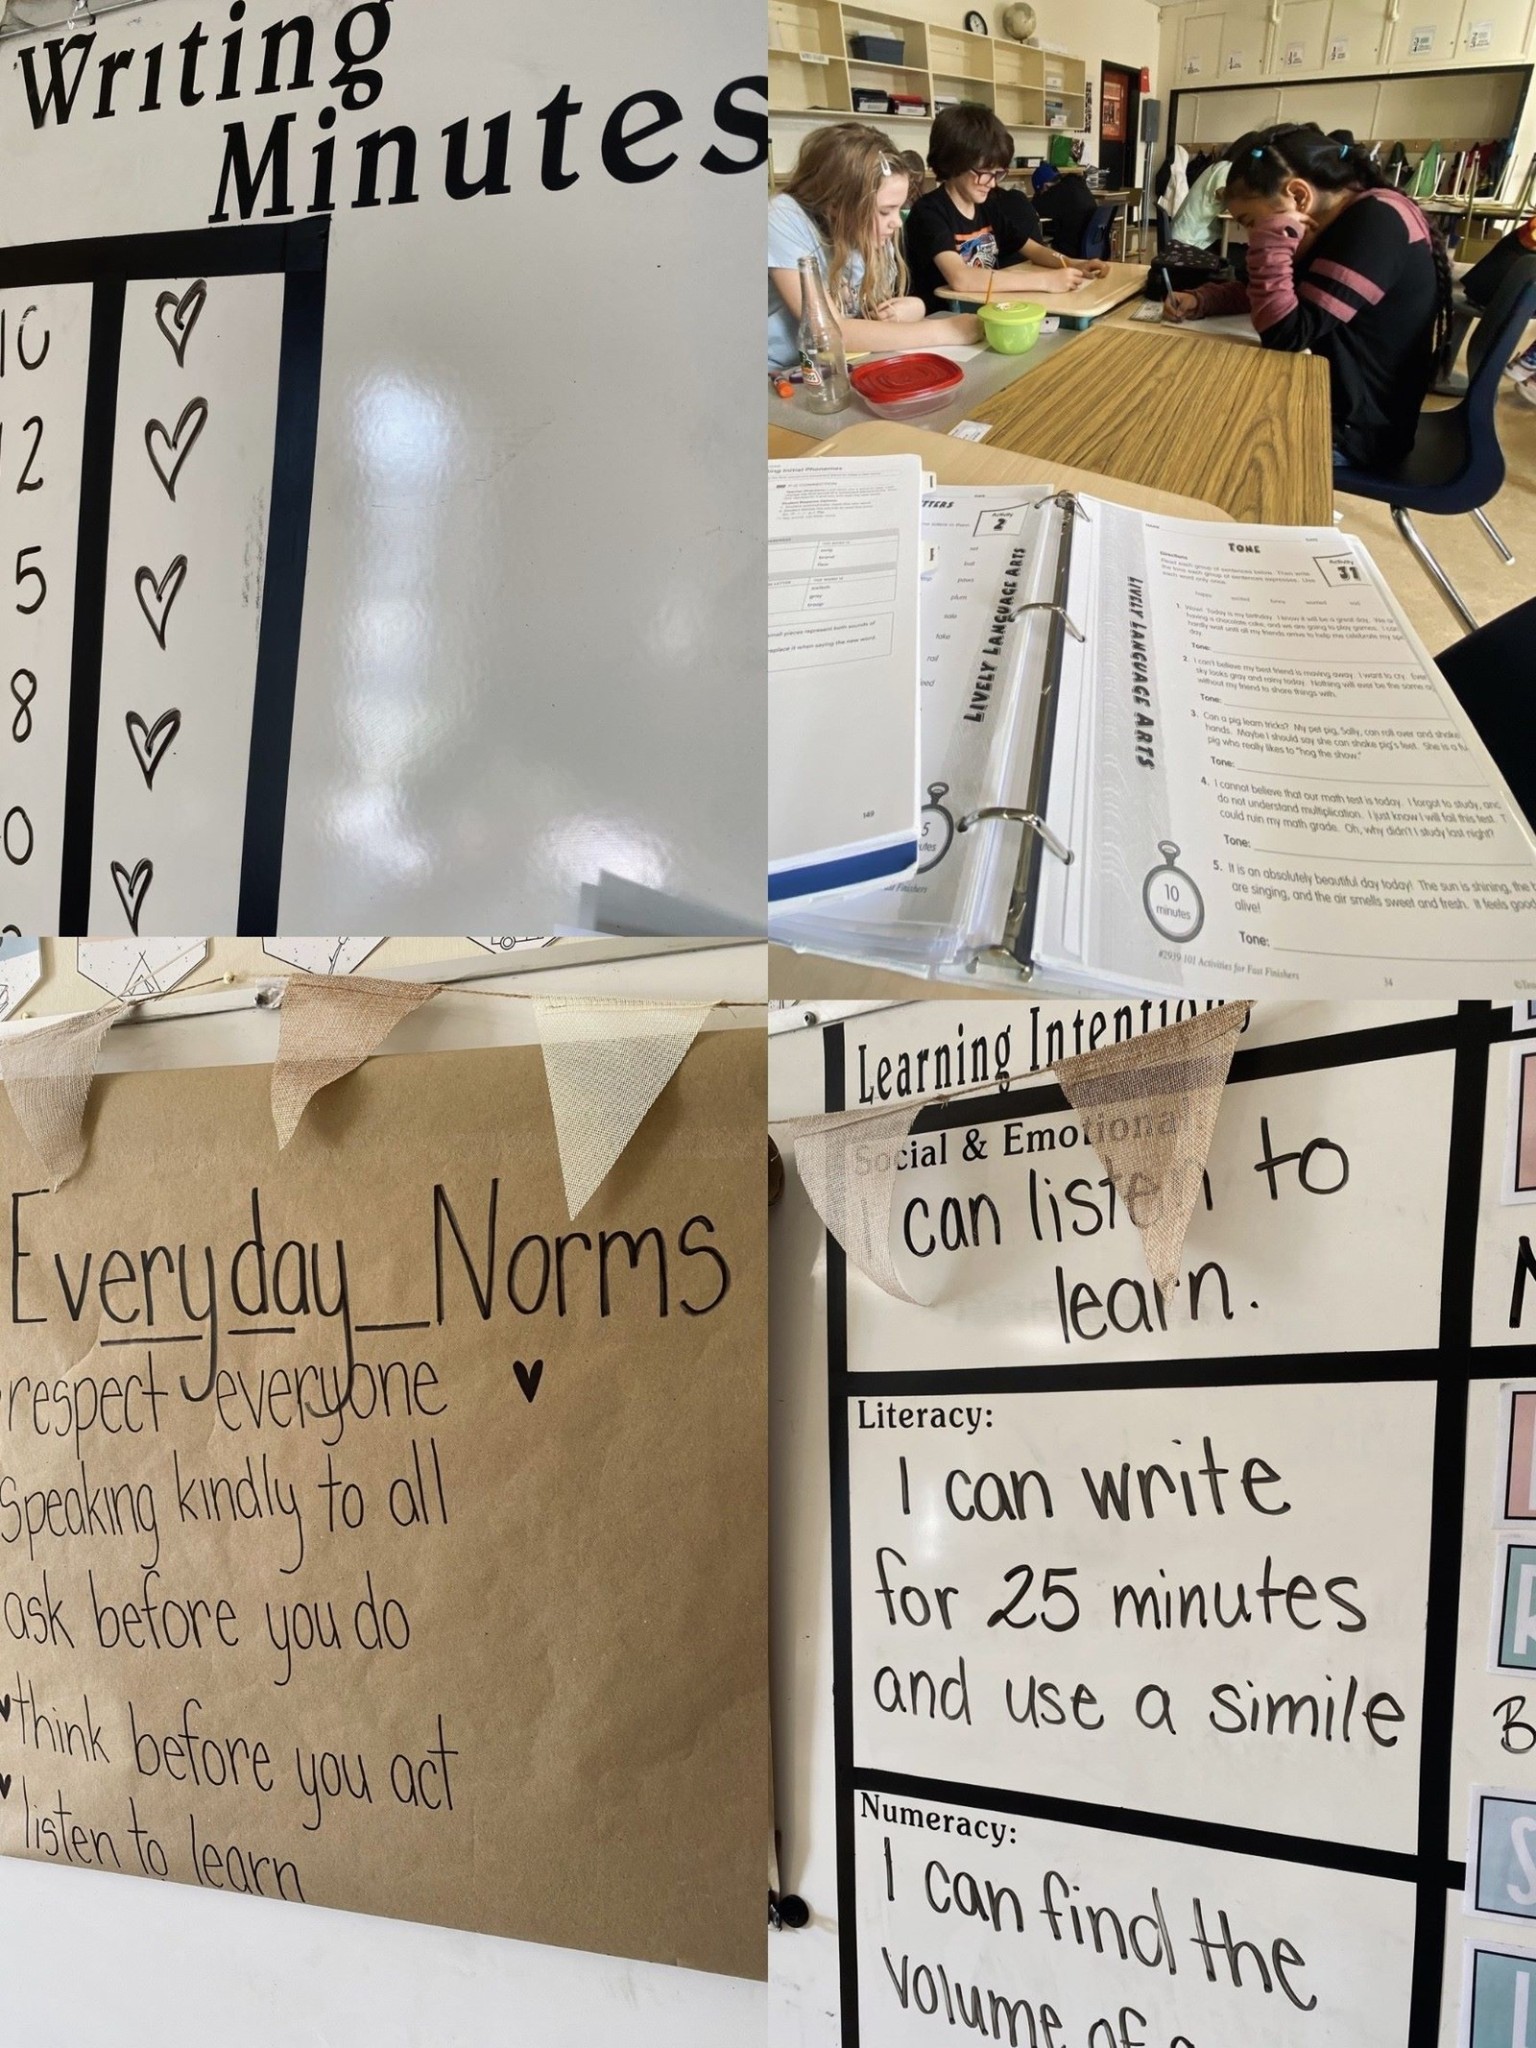 Writing
Minutes
10
12
5
8
0
LIVELY LANGUAGE ARTS
Activity
2
5
LIVELY LANGUAGE ARTS
TONE
Activity
31
Directions
1. Wow! Today is my birthday. I know it will be a great day.
having a chocolate cake, and we are going to play games. I can
hardly wait until all my friends arrive to help me celebrate my
day.
Tone:
2. I can't believe my best friend is moving away. I want to cry.
sky looks gray and rainy today. Nothing will ever be the same
without my friend to share things with.
Tone:
3. Can a pig learn tricks? My pet pig, Sally, can roll over and shake
hands. Maybe I should say she can shake pig's feet. She is a
pig who really likes to "hog the show."
Tone:
4. I cannot believe that our math test is today. I forgot to study, and
do not understand multiplication. I just know I will fail this test. T
could ruin my math grade. Oh, why didn't I study last night?
Tone:
5. It is an absolutely beautiful day today! The sun is shining, the b
are singing, and the air smells sweet and fresh. It feels good
alive!
Tone:
10
minutes
#2939 101 Activities for Fast Finishers
34
149
Everyday Norms
respect everyone
Speaking kindly to all
ask before you do
think before you act
listen to learn
Learning Intentions
Social & Emotional
I can listen to
learn.
Literacy:
I can write
for 25 minutes
and use a simile
Numeracy:
I can find the
volume of a